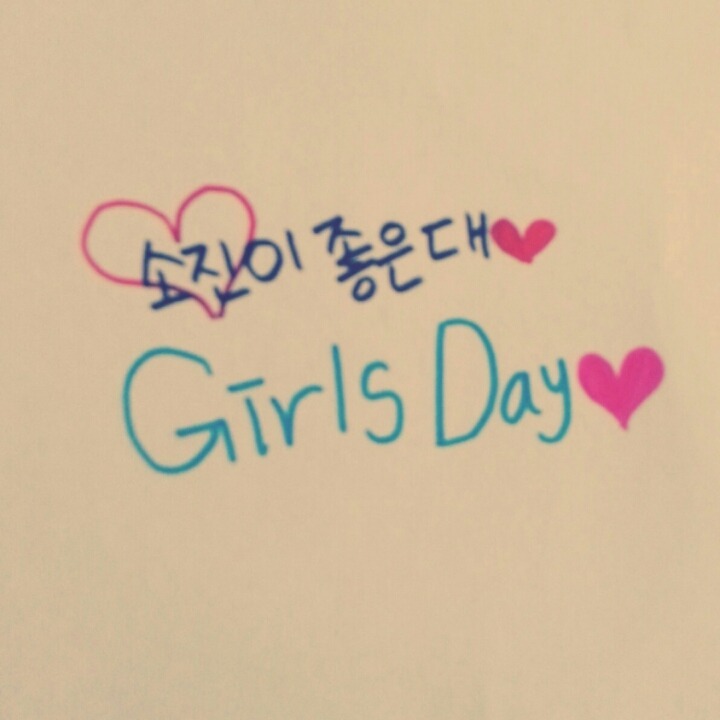 소진이 좋은대
Girls Day